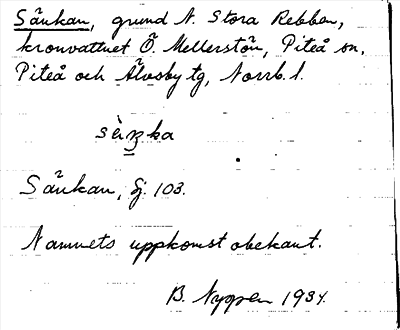 Sänkan, grund N. Stora Rebben,
kronvattnet Ö. Mellerstön, Piteå sn,
Piteå och Älvsby tg, Norrb. l.
sèŋka
Sänkan, Sj. 103.
Namnets uppkomst obekant.
B. Nygren 1934.